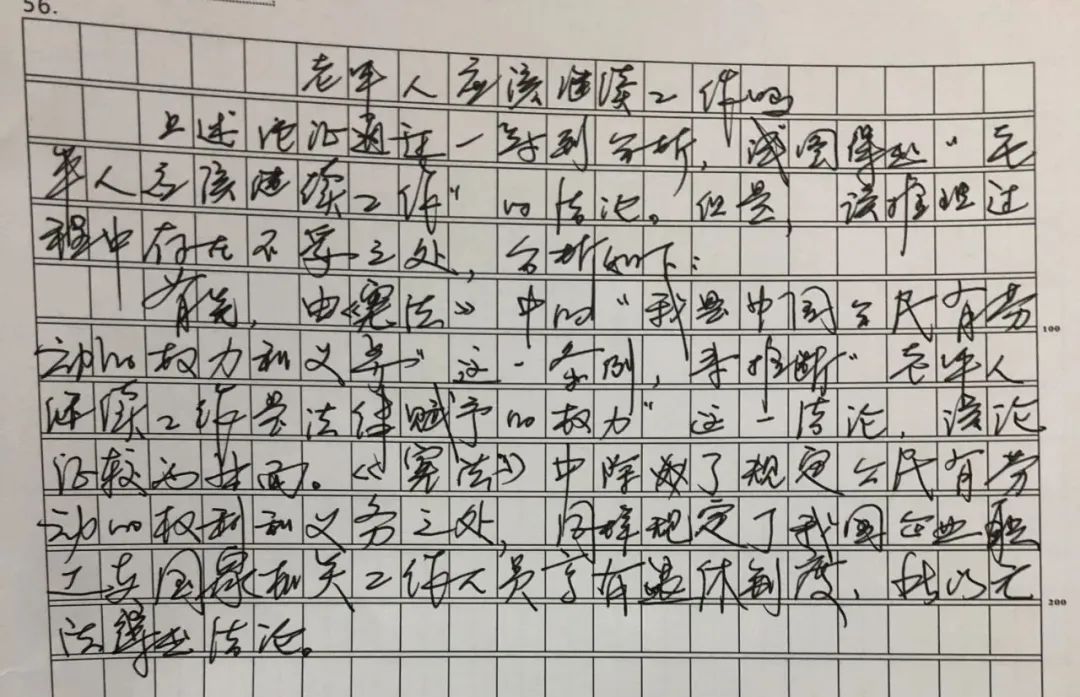 56.
老年人应该继续工作吗
上述论证通过一系列分析，试图得出“老
年人应该继续工作”的结论。但是，该推理过
程中存在不妥之处，分析如下：
首先，由《宪法》中的“我是中国公民有劳
动的权力和义务”这一条例，来推断“老年人
继续工作是法律赋予的权力”这一结论，该论
证较为片面。《宪法》中除了规定公民有劳
动的权利和义务之处，同样规定了我国企业职
工与国家机关工作人员享有退休制度，所以无
法得出结论。
100
200